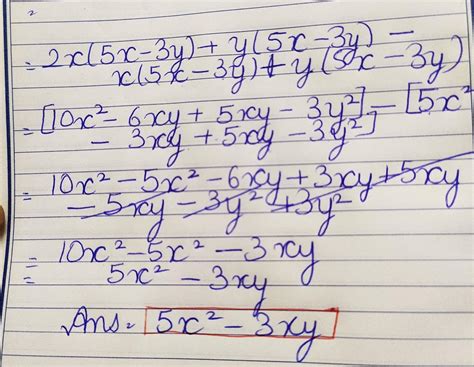 2
= 2x(5x-3y) + y(5x-3y) -
x(5x-3y) + y(5x-3y)
= [10x² - 6xy + 5xy - 3y²] - [5x²
- 3xy + 5xy - 3y²]
= 10x² - 5x² - 6xy + 3xy + 5xy
- 5xy - 3y² + 3y²
= 10x² - 5x² - 3xy
= 5x² - 3xy
Ans. 5x² - 3xy